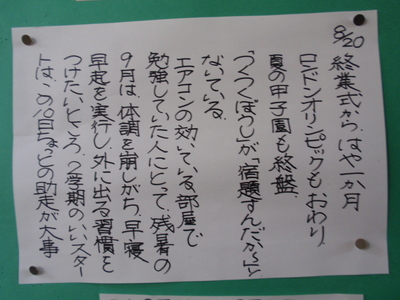 8/20 終業式から、はや一か月
ロンドンオリンピックもおわり、
夏の甲子園も終盤。
「つくつくぼうし」が「宿題すんだか〜」と
ないている。
エアコンの効いている部屋で
勉強していた人にとって、残暑の
9月は、体調を崩しがち。早寝
早起を実行し、外に出る習慣を
つけたいところ。2学期のいいスター
トは、この10日ちょっとの助走が大事